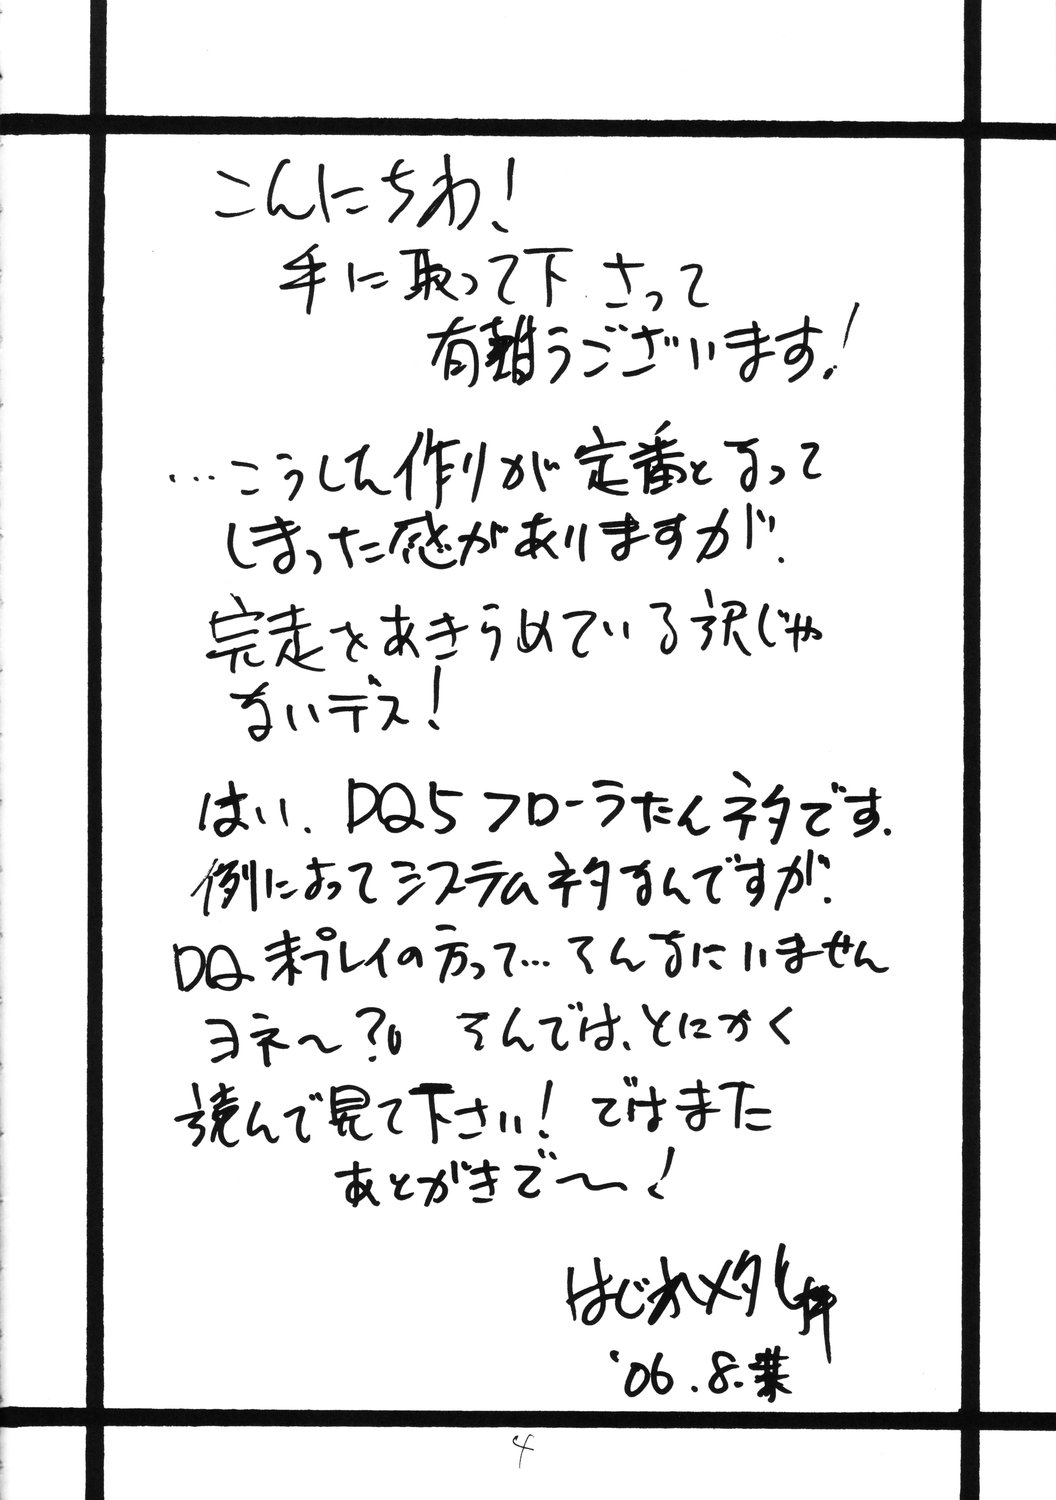 こんにちわ!
手に取って下さって
有難うございます!
…こうした作りが定番となって
しまった感がありますが、
完走をあきらめている訳じゃ
ないデス!
はい、DQ5フローラたんネタです。
例によってシステムネタなんですが、
DQ未プレイの方って…そんなにいません
ヨネ〜?。それでは、とにかく
読んで見て下さい!ではまた
あとがきで〜!
はじれメタル
'06.8.
4